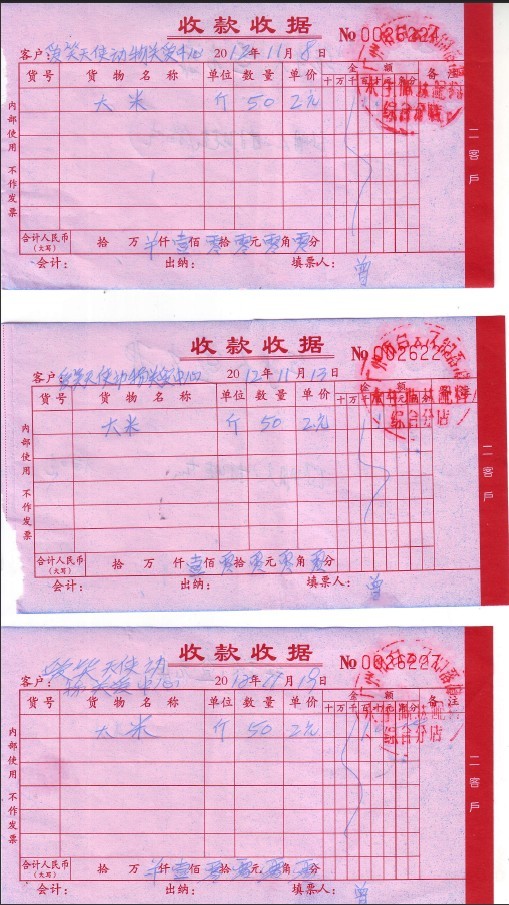 收款收据
No 0026224
客户：笑笑天使动物关爱中心 2012年11月8日
货号 货物名称 单位 数量 单价 金额 备注
十 万 千 百 十 元 角 分
大米 斤 50 2元
合计人民币(大写) 拾 万 仟壹佰零拾零元零角零分
会计： 出纳： 填票人：曾
内部使用 不作发票
二客户
综合分店
收款收据
No 002622
客户：笑笑天使动物关爱中心 2012年11月13日
货号 货物名称 单位 数量 单价 金额
十 万 千 百 十 元 角 分
大米 斤 50 2元
合计人民币(大写) 拾 万 仟壹佰零拾零元零角零分
会计： 出纳： 填票人：曾
内部使用 不作发票
二客户
综合分店
收款收据
No 0026227
客户：笑笑天使动物关爱中心 2012年 19日
货号 货物名称 单位 数量 单价 金额 备注
十 万 千 百 十 元 角 分
大米 斤 50 2元
合计人民币(大写) 拾 万 仟壹佰零拾零元零角零分
会计： 出纳： 填票人：曾
内部使用 不作发票
二客户
综合分店